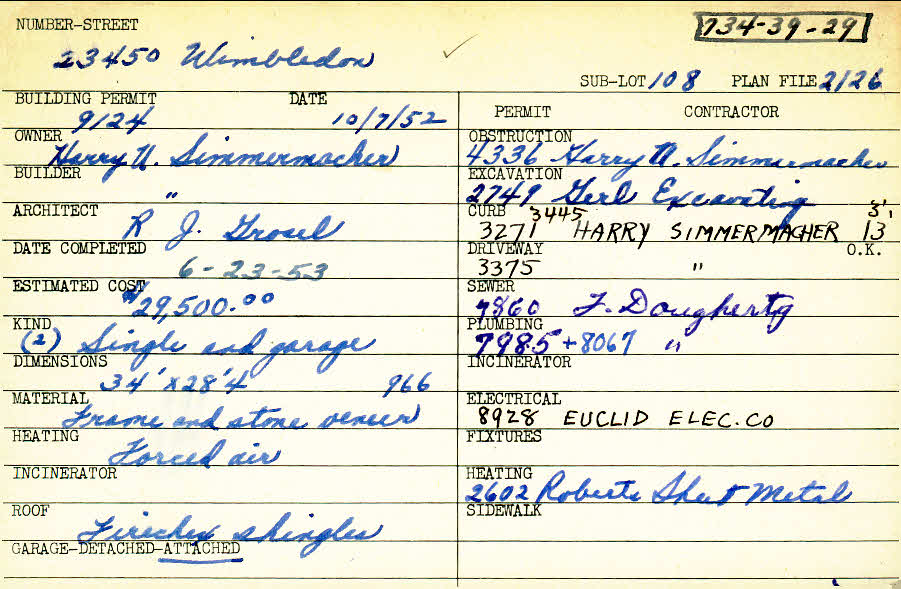 NUMBER-STREET
734-39-29
23450 Wimbledon
SUB-LOT 108 PLAN FILE 2126
BUILDING PERMIT DATE
9124 10/7/52
OWNER
Harry A. Simmermacher
BUILDER
"
ARCHITECT
R J. Grosel
DATE COMPLETED
6-23-53
ESTIMATED COST
$29,500.00
KIND
(2) Single and garage
DIMENSIONS
34' x 28'4 966
MATERIAL
Frame and stone veneer
HEATING
Forced air
INCINERATOR
ROOF
Firechex shingles
GARAGE-DETACHED-ATTACHED
PERMIT CONTRACTOR
OBSTRUCTION
4336 Harry A. Simmermacher
EXCAVATION
2749 Gerl Excavating
CURB 3445 3'
3271 HARRY SIMMERMACHER 13
DRIVEWAY O.K.
3375 "
SEWER
7860 F. Dougherty
PLUMBING
7985 + 8067 "
INCINERATOR
ELECTRICAL
8928 EUCLID ELEC. CO
FIXTURES
HEATING
2602 Roberts Sheet Metal
SIDEWALK